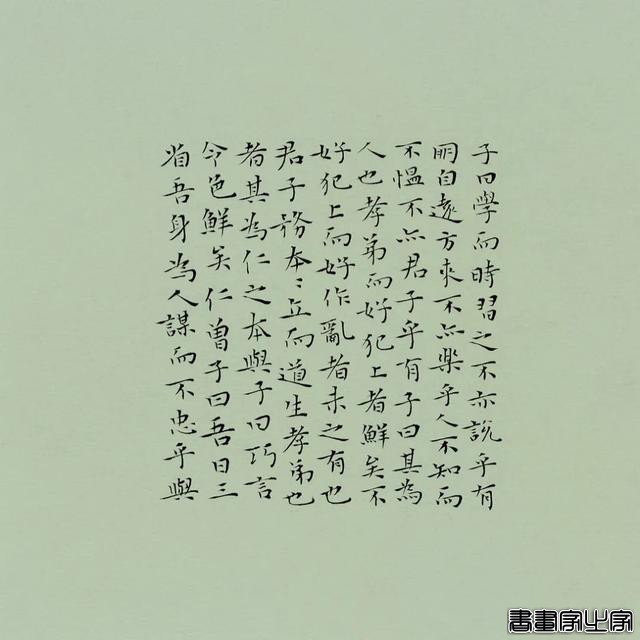 子曰學而時習之不亦說乎有
朋自遠方來不亦樂乎人不知而
不慍不亦君子乎有子曰其為
人也孝弟而好犯上者鮮矣不
好犯上而好作亂者未之有也
君子務本〻立而道生孝弟也
者其為仁之本與子曰巧言
令色鮮矣仁曾子曰吾日三
省吾身為人謀而不忠乎與
書畫